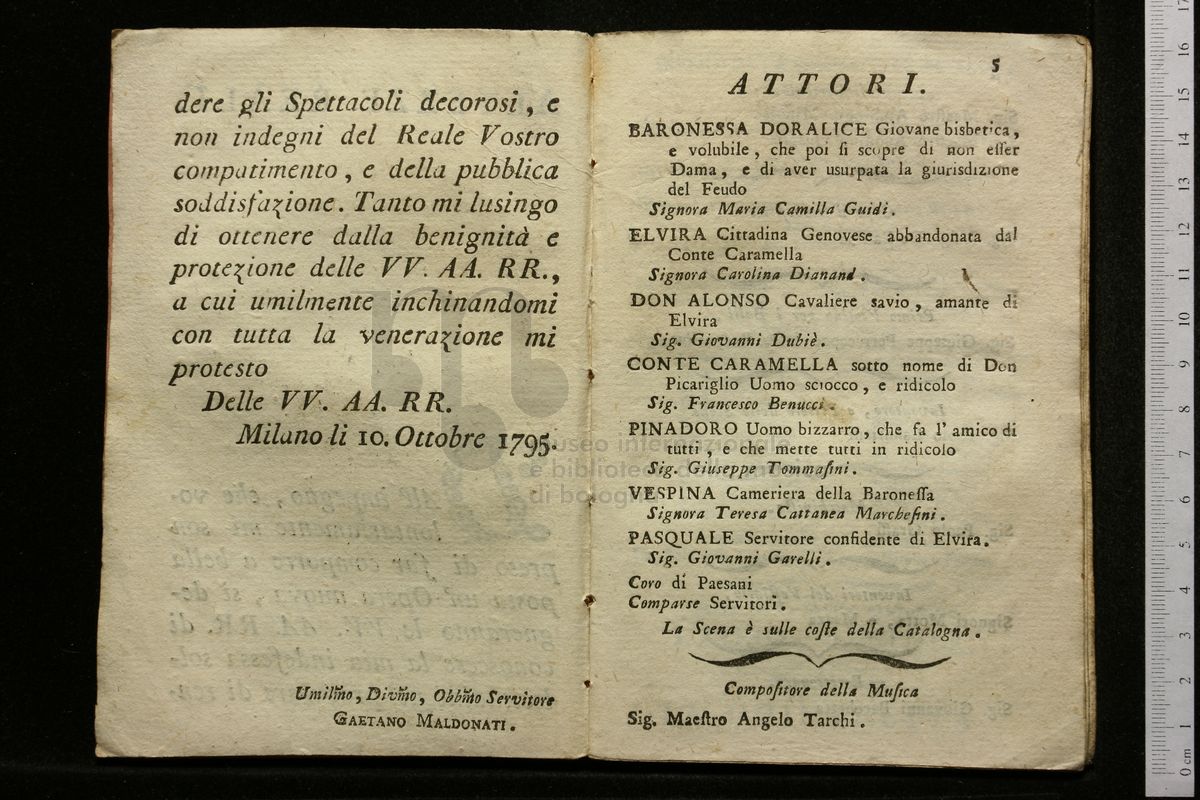 dere gli Spettacoli decorosi, e
non indegni del Reale Vostro
compatimento, e della pubblica
soddisfazione. Tanto mi lusingo
di ottenere dalla benignità e
protezione delle VV. AA. RR.,
a cui umilmente inchinandomi
con tutta la venerazione mi
protesto
Delle VV. AA. RR.
Milano li 10. Ottobre 1795.
Umilm̃o, Divm̃o, Obbm̃o Servitore
GAETANO MALDONATI.
5
ATTORI.
BARONESSA DORALICE Giovane bisbetica,
e volubile, che poi ſi scopre di non eſſer
Dama, e di aver usurpata la giurisdizione
del Feudo
Signora Maria Camilla Guidi.
ELVIRA Cittadina Genovese abbandonata dal
Conte Caramella
Signora Carolina Dianand.
DON ALONSO Cavaliere savio, amante di
Elvira
Sig. Giovanni Dubiè.
CONTE CARAMELLA sotto nome di Don
Picariglio Uomo sciocco, e ridicolo
Sig. Francesco Benucci.
PINADORO Uomo bizzarro, che fa l' amico di
tutti, e che mette tutti in ridicolo
Sig. Giuseppe Tommaſini.
VESPINA Cameriera della Baroneſſa
Signora Teresa Cattanea Marcheſini.
PASQUALE Servitore confidente di Elvira.
Sig. Giovanni Garelli.
Coro di Paesani
Comparse Servitori.
La Scena è sulle coſte della Catalogna.
Compoſitore della Muſica
Sig. Maeſtro Angelo Tarchi.
museo internazionale
e biblioteca della musica
di bologna
0 cm 1 2 3 4 5 6 7 8 9 10 11 12 13 14 15 16 17